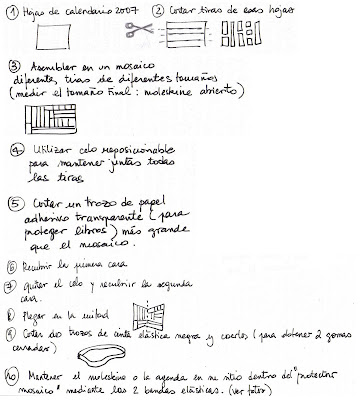 ① Hojas de calendario 2007 ② Cortar tiras de esas hojas
③ Asemblar en un mosaico
diferentes tiras de diferentes tamaños
(medir el tamaño final: moleskine abierto)
④ Utilizar celo reposicionable
para mantener juntas todas
las tiras
⑤ Cortar un trozo de papel
adhesivo transparente (para
proteger libros) más grande
que el mosaico.
⑥ Recubrir la primera cara
⑦ Quitar el celo y recubrir la segunda
cara.
⑧ Plegar en la mitad
⑨ Cortar dos trozos de cinta elástica negra y coerlos (para obtener 2 gomas
cerradas)
⑩ Mantener el moleskine o la agenda en su sitio dentro del "protector
mosaico" mediante las 2 bandas elásticas. (ver fotos)